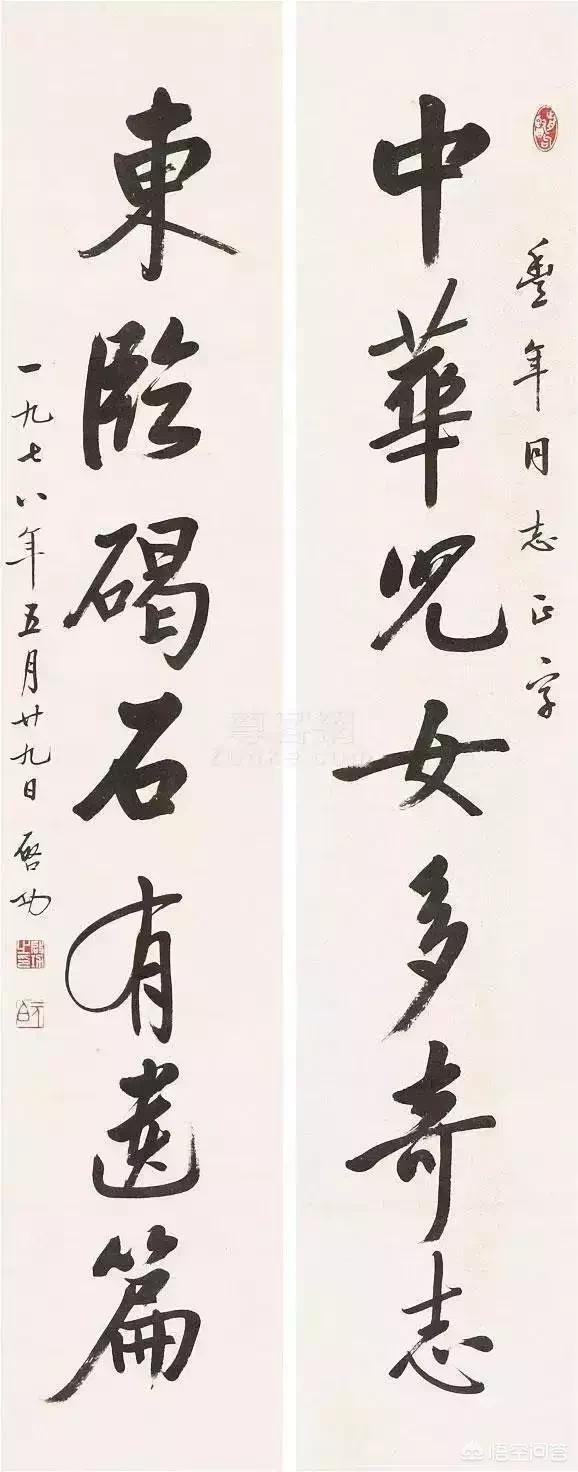 豐年同志正字
中華兒女多奇志
東臨碣石有遺篇
一九七八年五月廿九日 啓功
尊客網
悟空问答